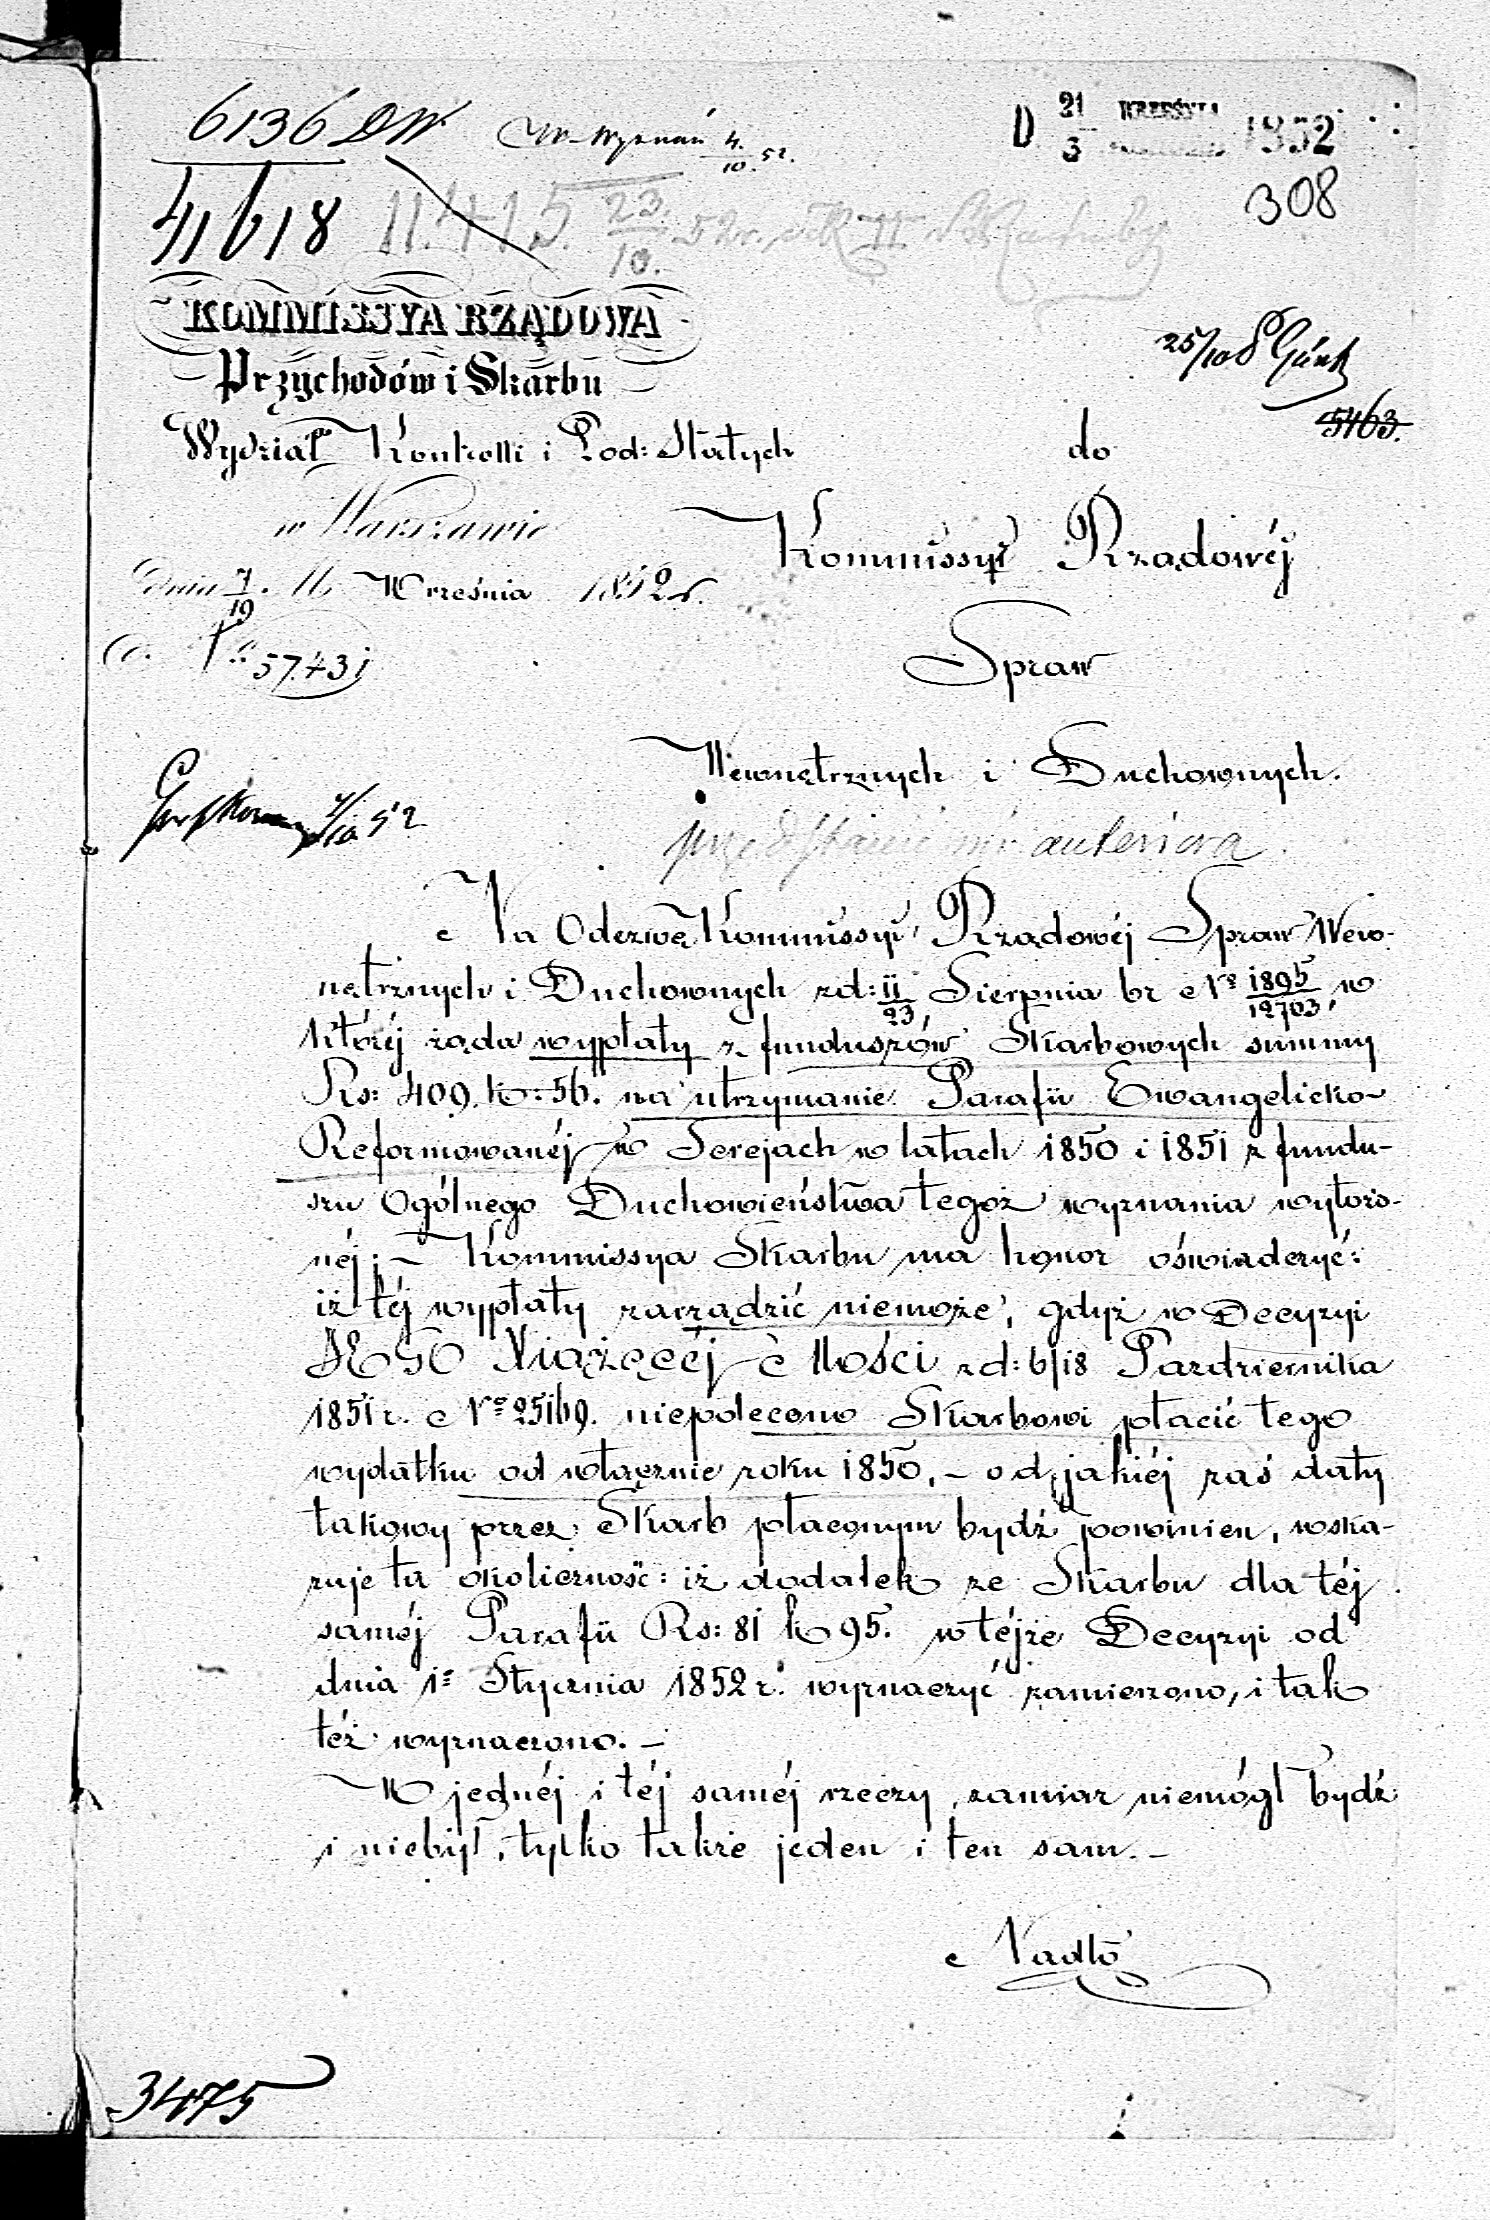 6136 DW.
W. Wyznań 4./10. 52.
D 21/3 WRZEŚNIA 1852
308
41618
11.415. 23./10. 52 r.
KOMMISSYA RZĄDOWA
Przychodów i Skarbu
25/10
5463.
Wydział Kontrolli i Pod: Stałych
do
w Warszawie
Kommissyi Rządowéj
Dnia 7/19 Września 1852 r.
57431
Spraw
Wewnętrznych i Duchownych.
4/10 52
przedstawić mi anteriora.
Na Odezwę Kommissyi Rządowéj Spraw Wew-
nętrznych i Duchownych zd: 11/23 Sierpnia br Nr 1895/12703, w
któréj żąda wypłaty z funduszów Skarbowych summy
Rs: 409. k: 56. na utrzymanie Parafii Ewangelicko-
Reformowanéj w Serejach w latach 1850 i 1851 z fundu-
szu Ogólnego Duchowieństwa tegoż wyznania wyłożo-
néj. – Kommissya Skarbu ma honor oświadczyć:
iż téj wypłaty zarządzić niemoże, gdyż w Decyzyi
JEGO Xiążęcéj Mości zd: 6/18 Pazdziernika
1851 r. No 25169. niepolecono Skarbowi płacić tego
wydatku od włącznie roku 1850, – od jakiéj zaś daty
takowy przez Skarb płaconym bydź powinien, wska-
zuje ta okoliczność: iż dodatek ze Skarbu dla téj
saméj Parafii Rs: 81 k 95. w téjże Decyzyi od
dnia 1o Stycznia 1852 r. wyznaczyć zamierzono, i tak
téż wyznaczono. –
W jednéj i téj saméj rzeczy, zamiar niemógł bydź
i niebył, tylko także jeden i ten sam. –
Nadto
3475